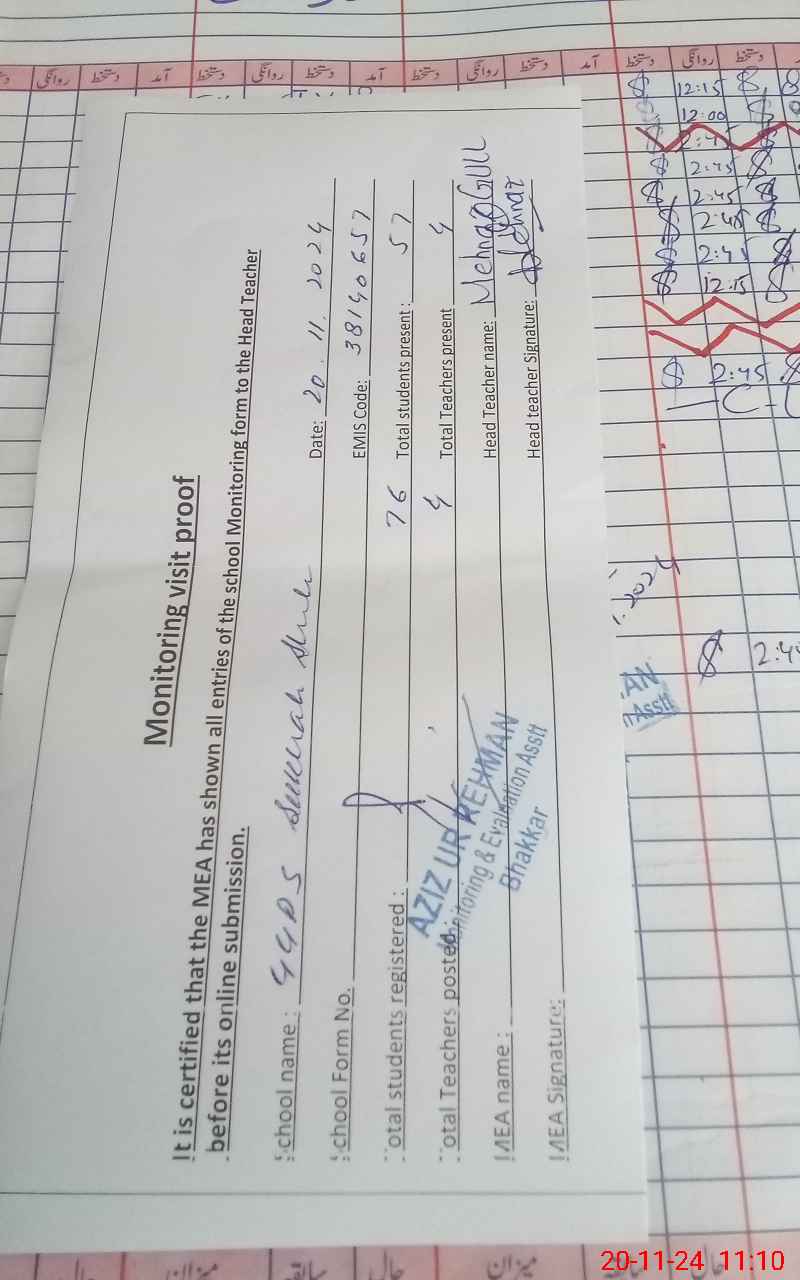 Monitoring visit proof
It is certified that the MEA has shown all entries of the school Monitoring form to the Head Teacher
before its online submission.
School name: GGPS Date: 20.11.2024
School Form No. EMIS Code: 38140657
Total students registered: 76 Total students present: 57
Total Teachers posted: 4 Total Teachers present 4
MEA name: Head Teacher name: GULL
MEA Signature: Head teacher Signature:
AZIZ UR REHMAN
Monitoring & Evaluation Asstt
Bhakkar
روانگی دستخط آمد دستخط روانگی دستخط آمد دستخط روانگی دستخط آمد دستخط روانگی دستخط
12:15
12:00
2:45
2:45
2:45
2:45
2:45
12:15
2:45
2024
AN
Asstt
میزان سابقہ حال میزان حال
20-11-24 11:10